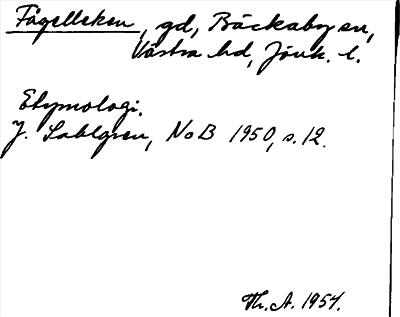 Fågelleken, gd, Bäckaby sn,
Västra hd, Jönk. l.
Etymologi.
J. Sahlgren, NoB 1950, s. 12.
Th. A. 1954.